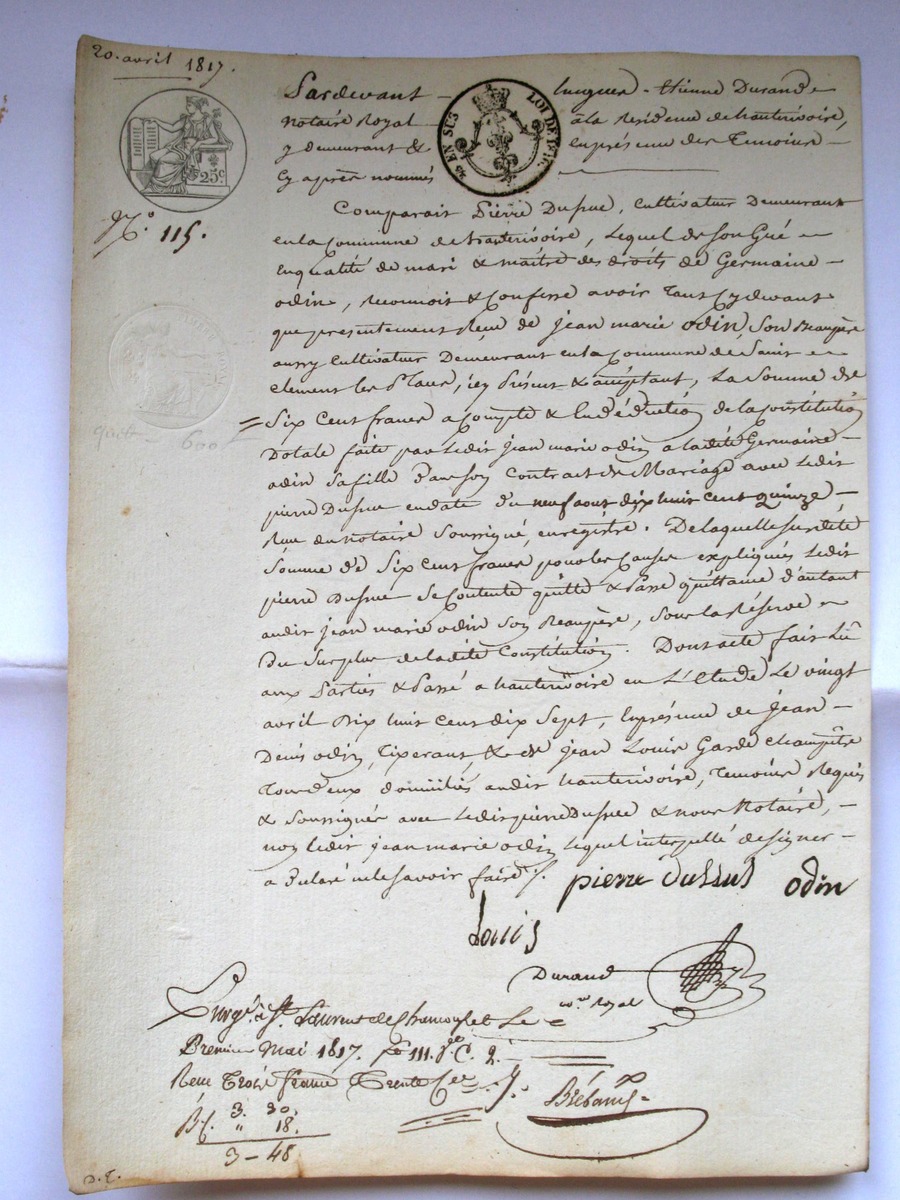 20. avril 1817.
Pardevant Jacques Etienne Durand
notaire Royal à la Residence de hauterivoire,
y demeurant & en présence des Temoins
Cy après nommés
EN SUS LOI DE 1816.
25c.
N.o 115.
Comparait pierre Dussuc, Cultivateur Demeurant
en la Commune de hauterivoire, Lequel de son Gré
En qualité de mari & maître des droits de Germaine
odin, Reconnoit & Confesse avoir Tant Cy devant
que presentement Reçu de jean marie odin, son Beaupère
aussy Cultivateur Demeurant en la Commune de Saint
Clement les places, icy présent & acceptant, La Somme de
Six Cent francs a Compte & en déduction de la Constitution
quit. 600
Dotale faite par ledit jean marie odin a la dite Germaine
odin sa fille dans son Contract de Mariage avec ledit
pierre Dussuc en date du neuf aout dix huit cent quinze
Reçu du Notaire Soussigné, enregistré. De laquelle susdite
Somme de Six Cent francs pour les Causes expliquées ledit
pierre Dussuc se Contente quitte & passe quittance d'autant
audit jean marie odin son Beaupère, sous la Réserve
du Surplus de la dite Constitution. Dont acte fait Lû
aux parties & passé a hauterivoire en L'Etude Le vingt
avril Dix huit cent dix Sept, En présence de jean
Denis odin, Tixerant, & de jean Louis Garde champêtre
Tous deux domiciliés audit hauterivoire, Temoins Requis
& Soussignés avec ledit pierre Dussuc & nous Notaire,
non ledit jean marie odin lequel interpellé de signer
a déclaré ne le savoir faire
pierre dussuc odin
Louis
Durand
nre Royal
Enregé à St Laurent de Chamousset Le
Premier Mai 1817. fo 111. Vo C. 2.
Reçu Trois francs Trente Ces
3. 30.
" 18.
3 - 48